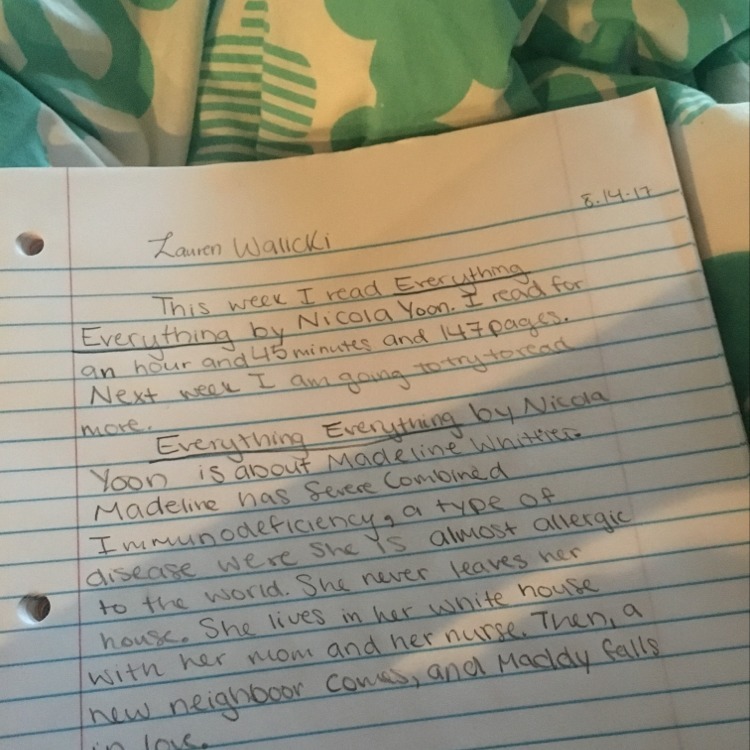 8.14.17
Lauren Walicki
This week I read Everything
Everything by Nicola Yoon. I read for
an hour and 45 minutes and 147 pages.
Next week I am going to try to read
more.
Everything Everything by Nicola
Yoon is about Madeline Whittier.
Madeline has Severe Combined
Immunodeficiency, a type of
disease were she is almost allergic
to the world. She never leaves her
house. She lives in her white house
with her mom and her nurse. Then, a
new neighboor comes, and Maddy falls
in love.